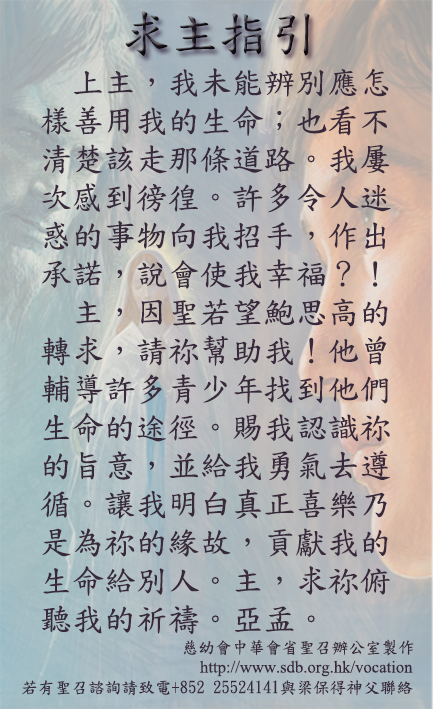 求主指引
上主，我未能辨別應怎
樣善用我的生命；也看不
清楚該走那條道路。我屢
次感到徬徨。許多令人迷
惑的事物向我招手，作出
承諾，說會使我幸福？！
主，因聖若望鮑思高的
轉求，請祢幫助我！他曾
輔導許多青少年找到他們
生命的途徑。賜我認識祢
的旨意，並給我勇氣去遵
循。讓我明白真正喜樂乃
是為祢的緣故，貢獻我的
生命給別人。主，求祢俯
聽我的祈禱。亞孟。
慈幼會中華會省聖召辦公室製作
http://www.sdb.org.hk/vocation
若有聖召諮詢請致電+852 25524141與梁保得神父聯絡